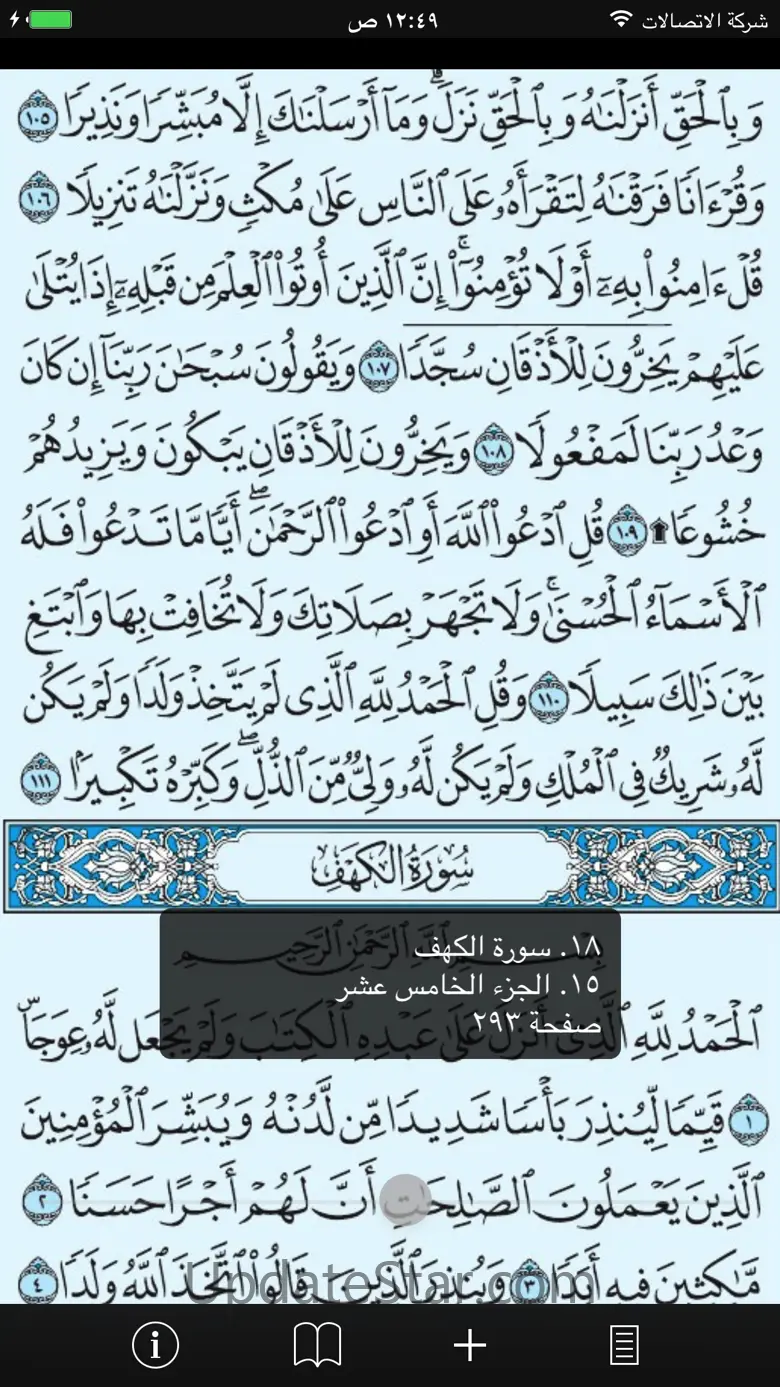 شركة الاتصالات ١٢:٤٩ ص
وَبِٱلْحَقِّ أَنزَلْنَٰهُ وَبِٱلْحَقِّ نَزَلَ ۗ وَمَآ أَرْسَلْنَٰكَ إِلَّا مُبَشِّرًا وَنَذِيرًا ١٠٥
وَقُرْءَانًا فَرَقْنَٰهُ لِتَقْرَأَهُۥ عَلَى ٱلنَّاسِ عَلَىٰ مُكْثٍ وَنَزَّلْنَٰهُ تَنزِيلًا ١٠٦
قُلْ ءَامِنُوا۟ بِهِۦٓ أَوْ لَا تُؤْمِنُوٓا۟ ۚ إِنَّ ٱلَّذِينَ أُوتُوا۟ ٱلْعِلْمَ مِن قَبْلِهِۦٓ إِذَا يُتْلَىٰ
عَلَيْهِمْ يَخِرُّونَ لِلْأَذْقَانِ سُجَّدًا ١٠٧ وَيَقُولُونَ سُبْحَٰنَ رَبِّنَآ إِن كَانَ
وَعْدُ رَبِّنَا لَمَفْعُولًا ١٠٨ وَيَخِرُّونَ لِلْأَذْقَانِ يَبْكُونَ وَيَزِيدُهُمْ
خُشُوعًا ١٠٩ قُلِ ٱدْعُوا۟ ٱللَّهَ أَوِ ٱدْعُوا۟ ٱلرَّحْمَٰنَ ۖ أَيًّا مَّا تَدْعُوا۟ فَلَهُ
ٱلْأَسْمَآءُ ٱلْحُسْنَىٰ ۚ وَلَا تَجْهَرْ بِصَلَاتِكَ وَلَا تُخَافِتْ بِهَا وَٱبْتَغِ
بَيْنَ ذَٰلِكَ سَبِيلًا ١١٠ وَقُلِ ٱلْحَمْدُ لِلَّهِ ٱلَّذِى لَمْ يَتَّخِذْ وَلَدًا وَلَمْ يَكُن
لَّهُۥ شَرِيكٌ فِى ٱلْمُلْكِ وَلَمْ يَكُن لَّهُۥ وَلِىٌّ مِّنَ ٱلذُّلِّ ۖ وَكَبِّرْهُ تَكْبِيرًۢا ١١١
سُورَةُ الكَهْفِ
بِسْمِ ٱللَّهِ ٱلرَّحْمَٰنِ ٱلرَّحِيمِ
١٨. سورة الكهف
١٥. الجزء الخامس عشر
صفحة ٢٩٣
ٱلْحَمْدُ لِلَّهِ ٱلَّذِىٓ أَنزَلَ عَلَىٰ عَبْدِهِ ٱلْكِتَٰبَ وَلَمْ يَجْعَل لَّهُۥ عِوَجَا ۜ
١ قَيِّمًا لِّيُنذِرَ بَأْسًا شَدِيدًا مِّن لَّدُنْهُ وَيُبَشِّرَ ٱلْمُؤْمِنِينَ
ٱلَّذِينَ يَعْمَلُونَ ٱلصَّٰلِحَٰتِ أَنَّ لَهُمْ أَجْرًا حَسَنًا ٢
مَّٰكِثِينَ فِيهِ أَبَدًا ٣ وَيُنذِرَ ٱلَّذِينَ قَالُوا۟ ٱتَّخَذَ ٱللَّهُ وَلَدًا ٤
UpdateStar.com